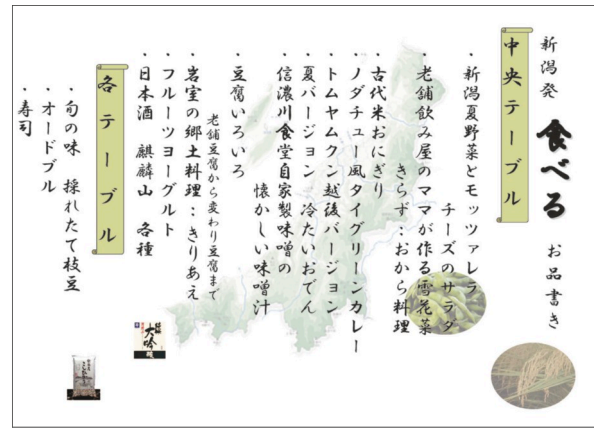 新潟発 食べる お品書き
中央テーブル
・新潟夏野菜とモッツァレラ
チーズのサラダ
・老舗飲み屋のママが作る雪花菜
きらず:おから料理
・古代米おにぎり
・ノダチュー風タイグリーンカレー
・トムヤムクン越後バージョン
・夏バージョン 冷たいおでん
・信濃川食堂自家製味噌の
懐かしい味噌汁
・豆腐いろいろ
老舗豆腐から変わり豆腐まで
・岩室の郷土料理:きりあえ
・フルーツヨーグルト
・日本酒 麒麟山 各種
各テーブル
・旬の味 採れたて枝豆
・オードブル
・寿司
大吟醸